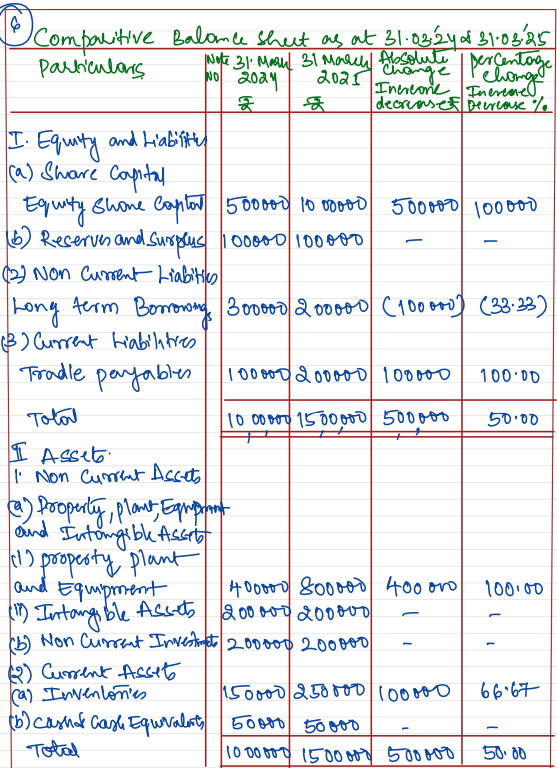 6
Comparitive Balance Sheet as at 31.03.'24 & 31.03.'25
Particulars Note No 31. March 2024 ₹ 31 March 2025 ₹ Absolute change Increase decrease ₹ Percentage change Increase Decrease %
I. Equity and Liabilities
(a) Share Capital
Equity Share Capital 500000 10 00000 500000 100000
(b) Reserves and Surplus 100000 100000 — —
(2) Non Current Liabilities
Long term Borrowings 300000 200000 (100000) (33.33)
(3) Current Liabilities
Tradle payables 100000 200000 100000 100.00
Total 10,00,000 15,00,000 5,00,000 50.00
II Assets.
1. Non Current Assets
(a) Property, plant, Equipment
and Intangible Assets
(i) property, plant
and Equipment 400000 800000 400000 100.00
(ii) Intangible Assets 200000 200000 — —
(b) Non Current Investments 200000 200000 - -
(2) Current Assets
(a) Inventories 150000 250000 100000 66.67
(b) Cash & Cash Equivalents 50000 50000 - -
Total 1000000 1500000 500000 50.00